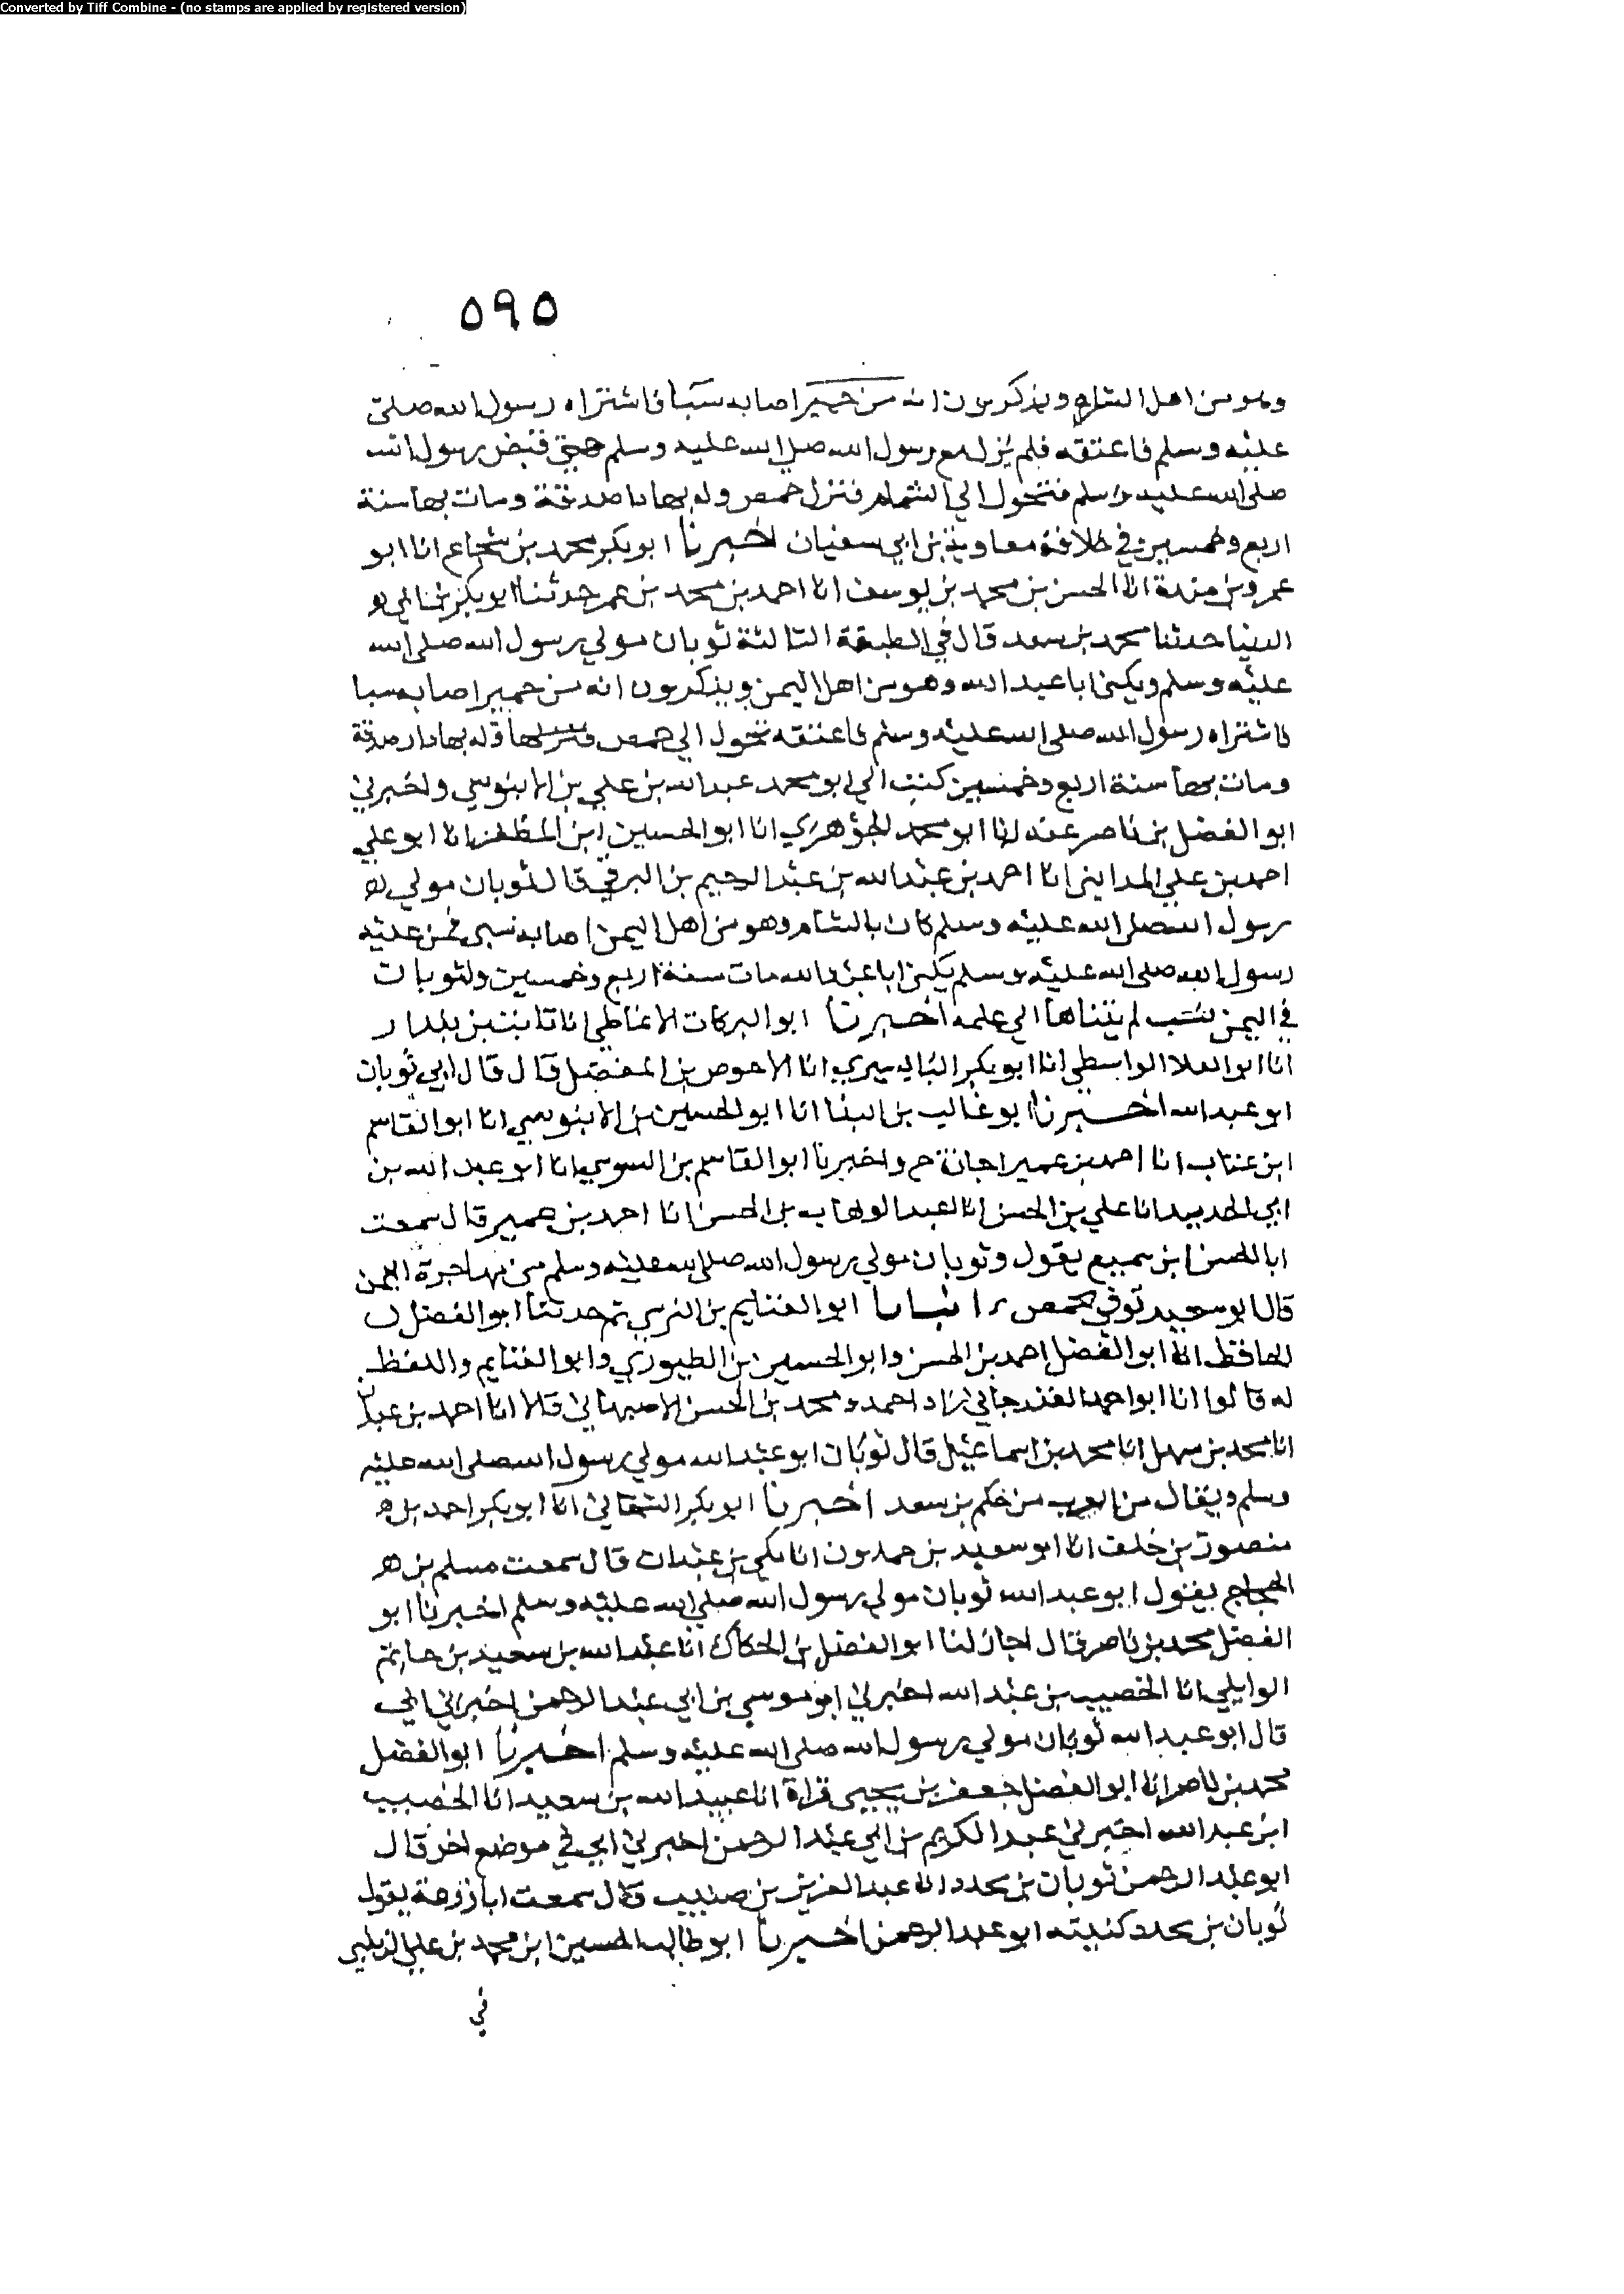 Converted by Tiff Combine - (no stamps are applied by registered version)
٥٩٥
وهو من اهل الشام ويذكرون انه من حمير اصابه سبا فاشتراه رسول الله صلى
عليه وسلم فاعتقه فلم يزل مع رسول الله صلى الله عليه وسلم حتى قبض رسول الله
صلى الله عليه وسلم فتحول الي الشام فنزل حمص وله بها دا صدقة ومات بها سنة
اربع وخمسين في خلافة معاوية بن ابي سفيان اخبرنا ابو بكر محمد بن شجاع انا ابو
عمرو بن مندة انا الحسن بن محمد بن يوسف انا احمد بن محمد بن عمر حدثنا ابو بكر بن ابي
الدنيا حدثنا محمد بن سعد قال في الطبقة الثالثة ثوبان مولي رسول الله صلى الله
عليه وسلم ويكنى ابا عبد الله وهو من اهل اليمن ويذكرون انه من حمير اصابه سبا
فاشتراه رسول الله صلى الله عليه وسلم فاعتقه تحول الي حمص فنزلها وله بها دار صدقة
ومات بها سنة اربع وخمسين كتب الي ابو محمد عبد الله بن علي بن الابنوسي واخبرني
ابو الفضل بن ناصر عنه انا ابو محمد الجوهري انا ابو الحسين ابن المظفر انا ابو علي
احمد بن علي المدايني انا احمد بن عبد الله بن عبد الرحيم بن البرقي قال ثوبان مولي
رسول الله صلى الله عليه وسلم كان بالشام وهو من اهل اليمن اصابه سبى فمن عليه
رسول الله صلى الله عليه وسلم يكنى ابا عبد الله مات سنة اربع وخمسين ولثوبان
في اليمن نسب لم يتناها الي علمه اخبرنا ابو البركات الانماطي انا ثابت بن بندار
انا ابو العلا الواسطي انا ابو بكر البابسيري انا الاحوص بن المفضل قال قال ابي ثوبان
ابو عبد الله اخبرنا ابو غالب بن البنا انا ابو الحسين بن الابنوسي انا ابو القاسم
ابن عتاب انا احمد بن عمير اجازة ح واخبرنا ابو القاسم بن السوسي انا ابو عبد الله بن
ابي الحديد انا علي بن الحسن انا عبد الوهاب بن الحسن انا احمد بن عمير قال سمعت
ابا الحسن ابن سميع يقول وثوبان مولي رسول الله صلى الله عليه وسلم من مهاجرة اليمن
قال ابو سعيد توفي بحمص انبانا ابو الغنايم بن النرسي ثم حدثنا ابو الفضل
الحافظ انا ابو الفضل احمد بن الحسن وابو الحسين بن الطيوري وابو الغنايم واللفظ
له قالوا انا ابو احمد الغندجاني زاد احمد ومحمد بن الحسن الاصبهاني قالا انا احمد بن عبدان
انا محمد بن سهل انا محمد بن اسماعيل قال ثوبان ابو عبد الله مولي رسول الله صلى الله عليه
وسلم ويقال من العرب من حكم بن سعد اخبرنا ابو بكر الشقاني انا ابو بكر احمد بن
منصور بن خلف انا ابو سعيد بن حمدون انا مكي بن عبدان قال سمعت مسلم بن
الحجاج يقول ابو عبد الله ثوبان مولي رسول الله صلى الله عليه وسلم اخبرنا ابو
الفضل محمد بن ناصر قال اجاز لنا ابو الفضل بن الحكاك انا عبد الله بن سعيد بن حاتم
الوايلي انا الخصيب بن عبد الله اخبرني ابو موسي بن ابي عبد الرحمن اخبرني ابي
قال ابو عبد الله ثوبان مولي رسول الله صلى الله عليه وسلم اخبرنا ابو الفضل
محمد بن ناصر انا ابو الفضل جعفر بن يحيى قراة انا عبيد الله بن سعيد انا الخصيب
ابن عبد الله اخبرني عبد الكريم بن ابي عبد الرحمن اخبرني ابي في موضع اخر قال
ابو عبد الرحمن ثوبان بن بحدد انا عبد العزيز بن منيب قال سمعت ابا زرعة يقول
ثوبان بن بحدد كنيته ابو عبد الرحمن اخبرنا ابو طالب الحسين ابن محمد بن علي الزينبي
في